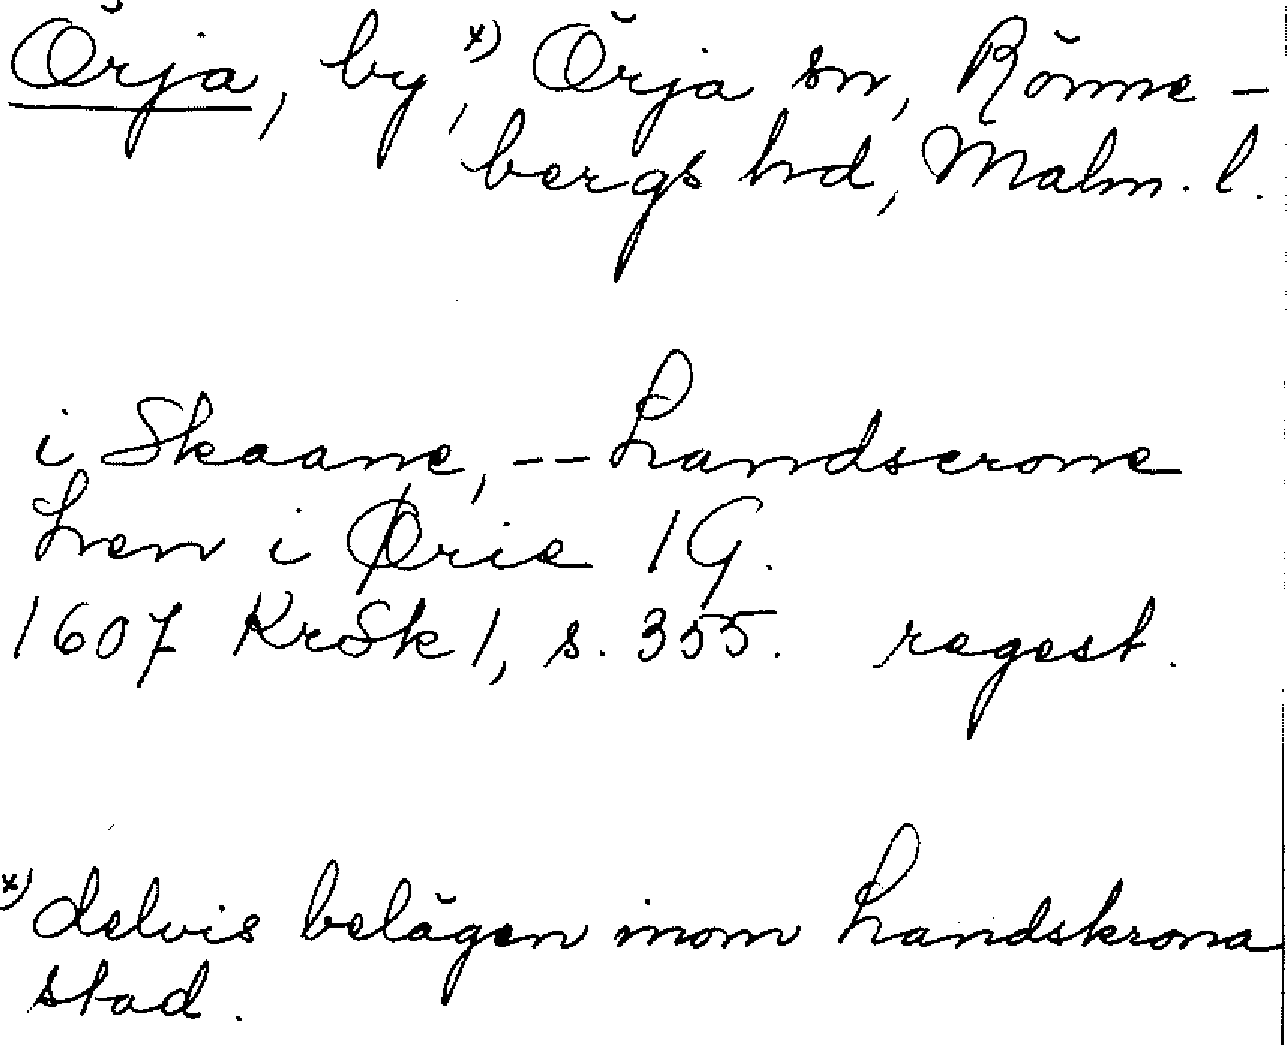 Örja, by,*) Örja sn, Rönne-
bergs hd, Malm. l.
i Skaane, -- Landscrone
Len i Ørie 1 G.
1607 KrSk 1, s. 355. regest.
*) delvis belägen inom Landskrona
stad.